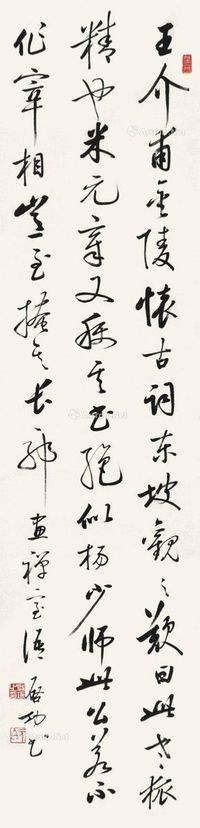 王介甫金陵怀古词东坡观之叹曰此老狐
精也米元章又称其书绝似杨少师此公若不
作宰相岂至掩其长耶 画禅室语 启功书